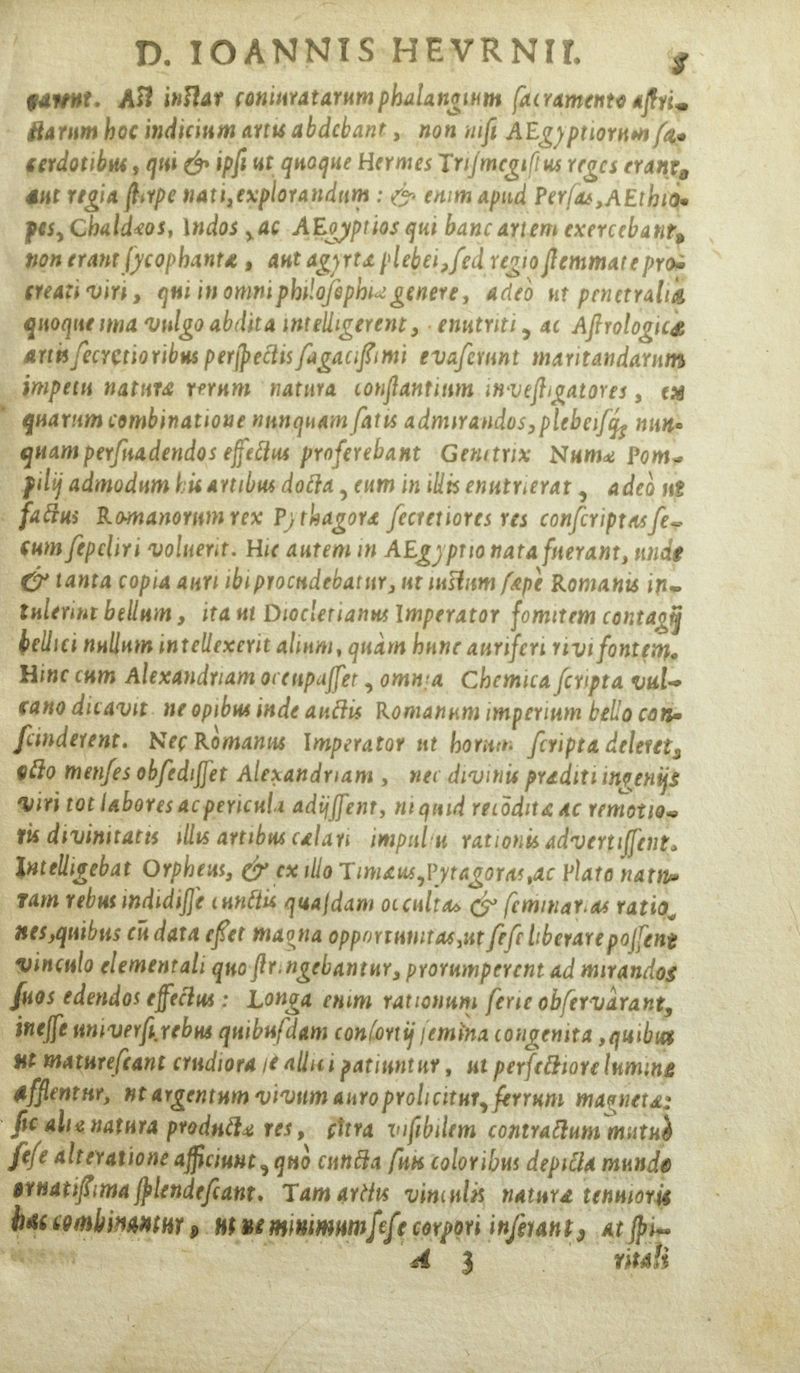 D. IOANNIS HEVRNII. 5
garent. Aſt inſtar coniuratarum phalangium ſacramento aſtri-
ctarum hoc indicium artis abdebant, non niſi AEgyptiorum ſa-
cerdotibus, qui & ipſi ut quoque Hermes Triſmegiſtus reges erant,
aut regia ſtirpe nati, explorandum: & enim apud Perſas, AEthio-
pes, Chaldæos, Indos, ac AEgyptios qui hanc artem exercebant,
non erant ſycophantæ, aut agyrtæ plebei, ſed regio ſtemmate pro-
creati viri, qui in omni philoſophiæ genere, adeò ut penetralia
quoque ima vulgo abdita intelligerent, enutriti, ac Aſtrologicæ
artis ſecretioribus perſpectis ſagaciſſimi evaſerunt maritandarum
impetu naturæ rerum natura conſtantium inveſtigatores, ex
quarum combinatione nunquam ſatis admirandos, plebeiſq́; nun-
quam perſuadendos effectus proferebant Genitrix Numæ Pom-
pilij admodum his artibus docta, eum in illis enutrierat, adeò ut
factus Romanorum rex Pythagoræ ſecretiores res conſcriptas ſe-
cum ſepeliri voluerit. Hic autem in AEgyptio nata fuerant, unde
& tanta copia auri ibi procudebatur, ut iuſtum ſæpè Romanis in-
tulerint bellum, ita ut Diocletianus Imperator fomitem contagij
bellici nullum intellexerit alium, quàm hunc auriferi rivi fontem.
Hinc cum Alexandriam occupaſſet, omnia Chemica ſcripta vul-
cano dicavit ne opibus inde auctis Romanum imperium bello con-
ſcinderent. Neç Romanus Imperator ut horum ſcripta deleret,
octo menſes obſediſſet Alexandriam, nec divinis præditi ingenijs
viri tot labores ac pericula adijſſent, ni quid recōditæ ac remotio-
ris divinitatis illis artibus cælari impulsu rationis advertiſſent.
Intelligebat Orpheus, & ex illo Timæus, Pytagoras, ac Plato natu-
ram rebus indidiſſe cunctis quaſdam occultas & ſeminarias ratio-
nes, quibus cū data eſſet magna opportunitas, ut ſeſe liberare poſſent
vinculo elementali quo ſtringebantur, prorumperent ad mirandos
ſuos edendos effectus: Longa enim rationum ſerie obſervàrant,
ineſſe univerſis rebus quibuſdam conſortij ſemina congenita, quibus
ut matureſcant crudiora ſe allici patiuntur, ut perfectiore lumine
afflentur, ut argentum vivum auro prolicitur, ferrum magnete:
ſic aliæ natura productæ res, citra viſibilem contractum mutuò
ſeſe alteratione afficiunt, quò cuncta ſuis coloribus depicta mundo
ornatiſſima ſplendeſcant. Tam arctis vinculis naturæ tenuioris
hæc combinantur, ut ne minimum ſeſe corpori inſerant, at ſpi-
A 3 ritali